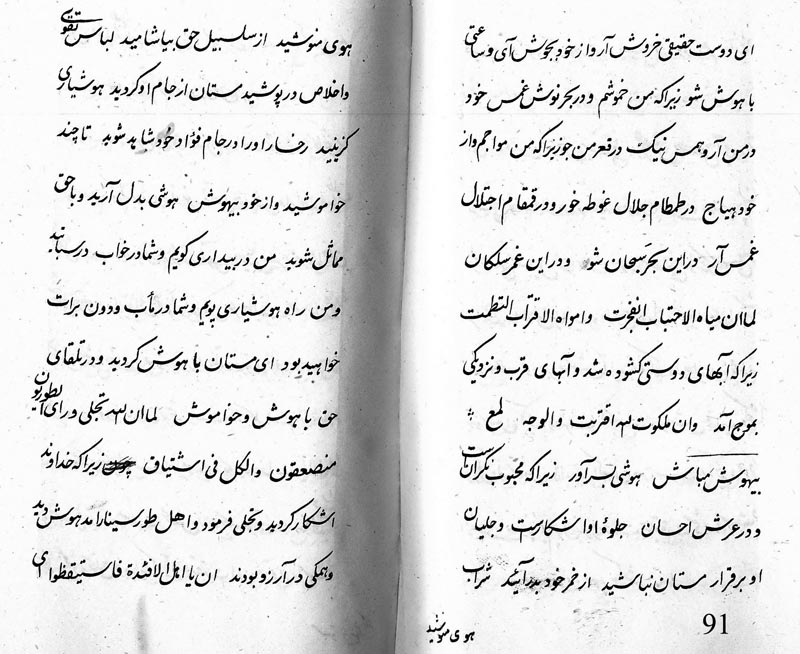 ای دوست حقیقی خروش آر و از خود بجوش آی و ساعتی
با هوش شو زیرا که من خموشم و در بحر نوش غمس خود
در من آر و همس نیک در قعر من جو زیرا که من مواجم و از
خود هیاج در طمطام جلال غوطه خور و در قمقام اجتلال
غمس آر در این بحر سبحان شو و در این غمر سلکان
لما ان میاه الاحتباب انفجرت و امواه الاقتراب التطمت
زیرا که آبهای دوستی کشوده شد و آبهای قرب و نزدیکی
بموج آمد و ان ملکوت لله اقتربت و الوجه لمع
بیهوش مباش هوشی بسر آور زیرا که محبوب نگران است
و در عرش احسان جلوهٔ او اشکار است و جلیان
او برقرار مستان نباشید از خمر خود بدر آیید شراب
هوی منوشید
91
هوی منوشید از سلسبیل حق بیاشامید لباس تقوی
و اخلاص در پوشید مستان از جام او کردید هوشیاری
کزینید رخسار او را در جام فؤاد خود شاهد شوید تا چند
خواموشید و از خود بیهوش هوشی بدل آرید و با حق
مماثل شوید من در بیداری کویم و شما در خواب در سباتید
و من راه هوشیاری پویم و شما در مأب و دون برات
خواهید بود ای مستان با هوش کردید و در تلقای
حق با هوش و خواموش لما ان لله تجلی و رای الطوریون
منصعقون و الکل فی اشتیاق زیرا که خداوند
اشکار کردید و تجلی فرمود و اهل طور سینا را مدهوش دید
و همکی در آرزو بودند ان یا اهل الافئدة فاستیقظوا ای